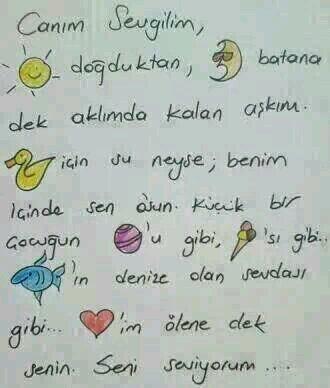 Canım Sevgilim,
doğduktan, batana
dek aklımda kalan aşkım.
için su neyse; benim
içinde sen osun. Küçük bir
Çocuğun 'u gibi, 'sı gibi..
'ın denize olan sevdası
gibi... 'im ölene dek
senin. Seni seviyorum ....